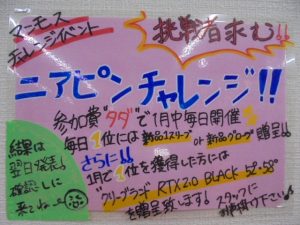 マンモス
チャレンジイベント
挑戦者求む!!
ニアピンチャレンジ!!
参加費"タダ"で1月中毎日開催
毎日1位には新品1スリーブor新品グローブ贈呈!!
さらに!!
1月で1位を獲得した方には
クリーブランド RTX2.0 BLACK 52°・58°
を贈呈致します!スタッフに
お声掛け下さい!!
結果は
翌日発表!!
確認しに
来てねー